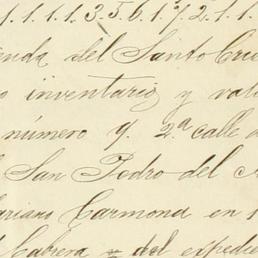 1.1.1.1.3.5.6.1.7.2.1.1.
enda del Santo Cri
o inventario y valu
número 4. 2.ª calle d
San Pedro del
ariano Carmona en
Cabrera = del expedie